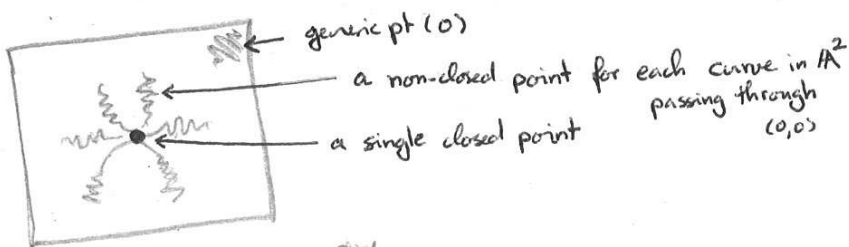 generic pt (0)
a non-closed point for each curve in 𝔸²
passing through
(0,0)
a single closed point